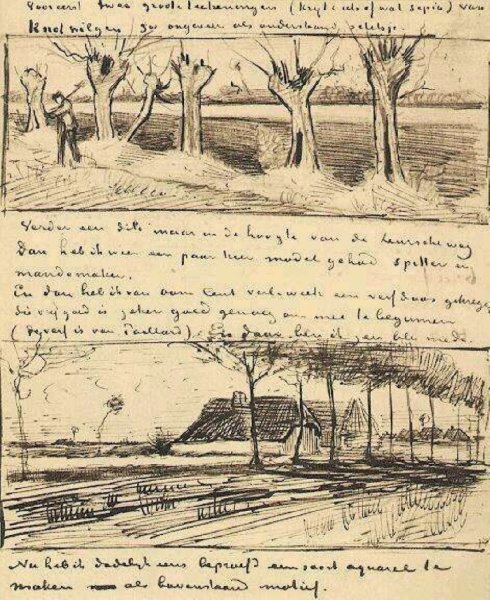 Vooreerst twee groote teekeningen (krijt en wat sepia) van
Knotwilgen zoo ongeveer als onderstaand
Verder een dito maar in de hoogte van de Leursche weg
Dan heb ik weer een paar keer model gehad spitter en
mandemaker.
En dan heb ik van oom Cent verl. week een verfdoos gekregen
die vrij goed is zeker goed genoeg om mee te beginnen
(de verf is van Paillard). En daar ben ik zeer blij mede.
Nu heb ik dadelijk eens beproefd een soort aquarel te
maken als bovenstaand motief.